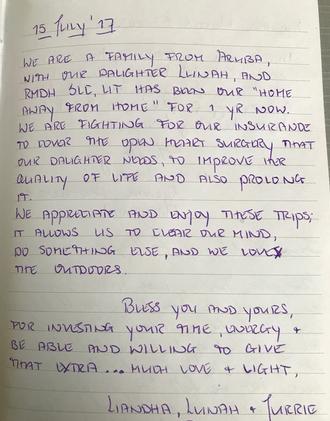 15 July '17
WE ARE A FAMILY FROM ARUBA,
WITH OUR DAUGHTER LUNAH, AND
RMDH SLC, LIT HAS BEEN OUR "HOME
AWAY FROM HOME" FOR 1 YR NOW.
WE ARE FIGHTING FOR OUR INSURANCE
TO COVER THE OPEN HEART SURGERY THAT
OUR DAUGHTER NEEDS, TO IMPROVE HER
QUALITY OF LIFE AND ALSO PROLONG
IT.
WE APPRECIATE AND ENJOY THESE TRIPS;
IT ALLOWS US TO CLEAR OUR MIND,
DO SOMETHING ELSE, AND WE LOVE
THE OUTDOORS.
BLESS YOU AND YOURS,
FOR INVESTING YOUR TIME, ENERGY +
BE ABLE AND WILLING TO GIVE
THAT EXTRA... MUCH LOVE + LIGHT,
LIANDHA, LUNAH + JURRIE